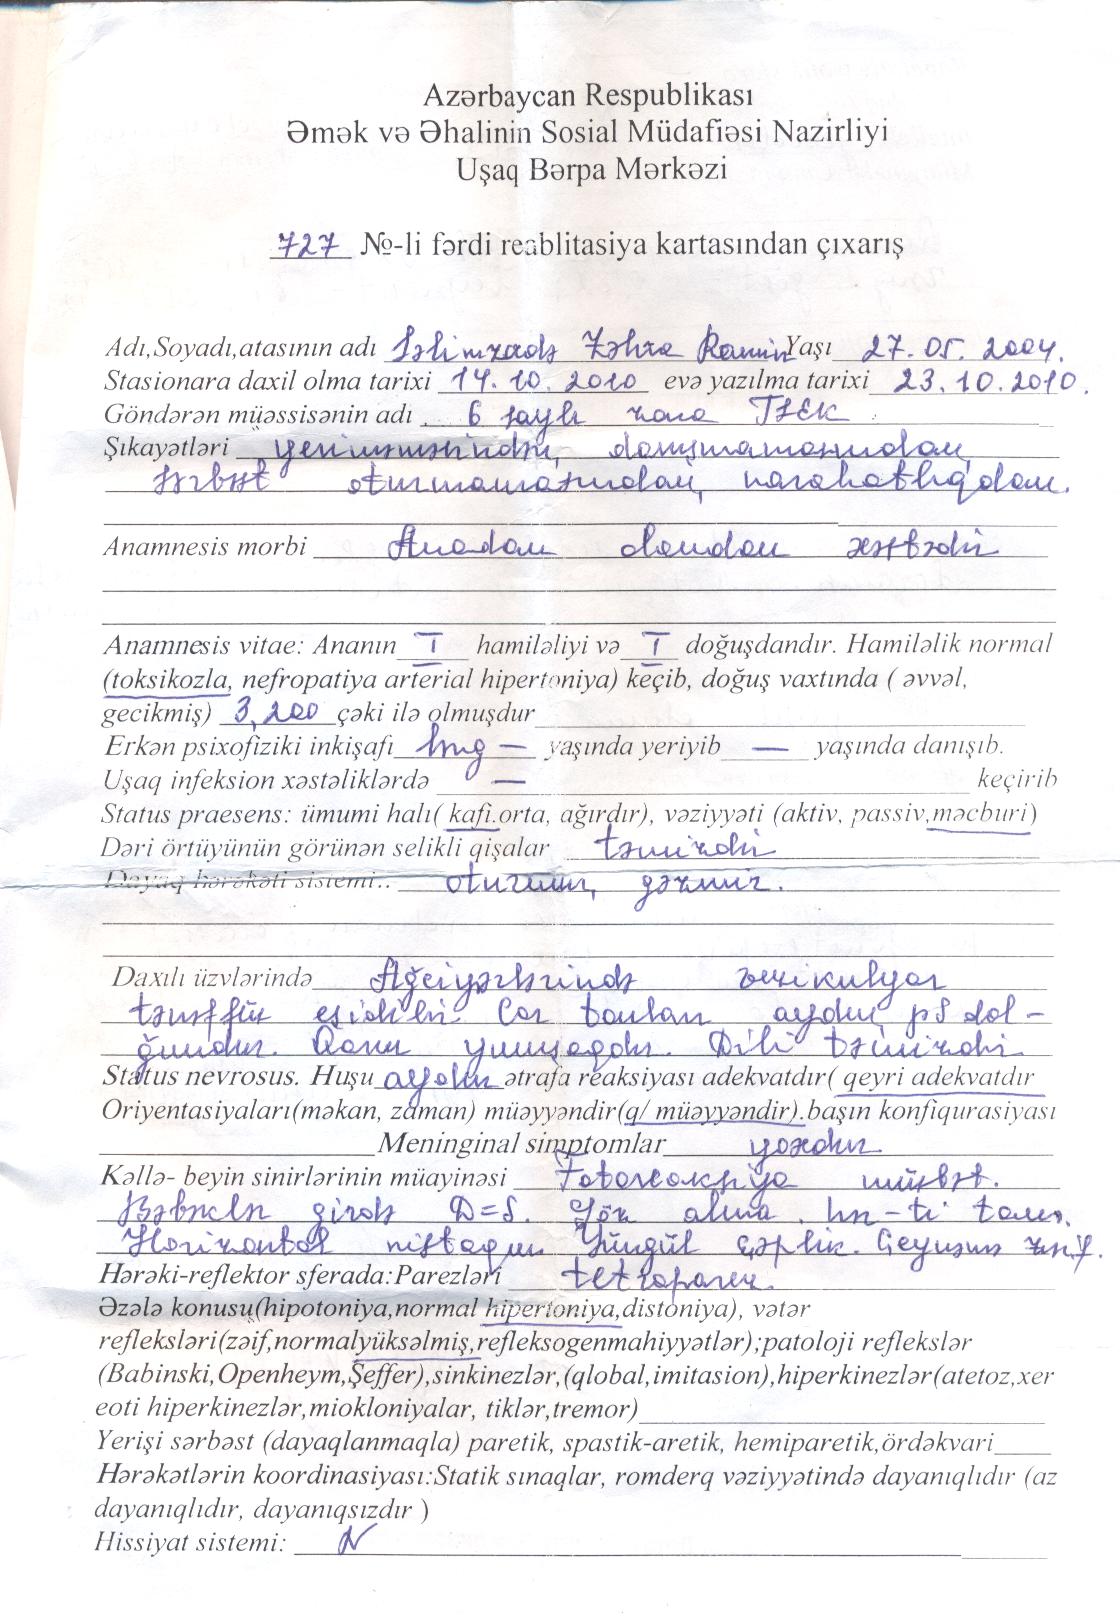 Azərbaycan Respublikası
Əmək və Əhalinin Sosial Müdafiəsi Nazirliyi
Uşaq Bərpa Mərkəzi
727 №-li fərdi reablitasiya kartasından çıxarış
Adı,Soyadı,atasının adı Səlimzadə Zəhra Ramin Yaşı 27.05.2004.
Stasionara daxil olma tarixi 14.10.2010 evə yazılma tarixi 23.10.2010.
Göndərən müəssisənin adı 6 saylı zona TSEK
Şikayətləri yeriməməsindən, danışmamasından
sərbəst oturmamasından, narahatlıqdan.
Anamnesis morbi Anadan olandan xəstədir
Anamnesis vitae: Ananın I hamiləliyi və I doğuşdandır. Hamiləlik normal
(toksikozla, nefropatiya arterial hipertoniya) keçib, doğuş vaxtında ( əvvəl,
gecikmiş) 3,200 çəki ilə olmuşdur
Erkən psixofiziki inkişafı ləng — yaşında yeriyib — yaşında danışıb.
Uşaq infeksion xəstəliklərdə — keçirib
Status praesens: ümumi halı( kafi.orta, ağırdır), vəziyyəti (aktiv, passiv,məcburi)
Dəri örtüyünün görünən selikli qişalar təmizdir
Dayaq hərəkəti sistemi.. oturmur, gəzmir.
Daxili üzvlərində Ağciyərlərində vezikulyar
tənəffüs eşidilir. Cor tonları aydın, ps dol-
ğundur. Qarnı yumşaqdır. Dili təmizdir
Status nevrosus. Huşu aydın ətrafa reaksiyası adekvatdır( qeyri adekvatdır
Oriyentasiyaları(məkan, zaman) müəyyəndir(q/ müəyyəndir).başın konfiqurasiyası
Meninginal simptomlar yoxdur
Kəllə- beyin sinirlərinin müayinəsi Fotoreaksiya müsbət.
Bəbəklər girdə D=S. Göz alma hər-ti tam.
Horizontal nistaqm Yüngül çəplik. Çeynəmə zəif.
Hərəki-reflektor sferada:Parezləri tetraparez.
Əzələ konusu(hipotoniya,normal hipertoniya,distoniya), vətər
refleksləri(zəif,normalyüksəlmiş,refleksogenmahiyyətlər);patoloji reflekslər
(Babinski,Openheym,Şeffer),sinkinezlər,(qlobal,imitasion),hiperkinezlər(atetoz,xer
eoti hiperkinezlər,miokloniyalar, tiklər,tremor)
Yerişi sərbəst (dayaqlanmaqla) paretik, spastik-aretik, hemiparetik,ördəkvari
Hərəkətlərin koordinasiyası:Statik sınaqlar, romderq vəziyyətində dayanıqlıdır (az
dayanıqlıdır, dayanıqsızdır )
Hissiyat sistemi: N